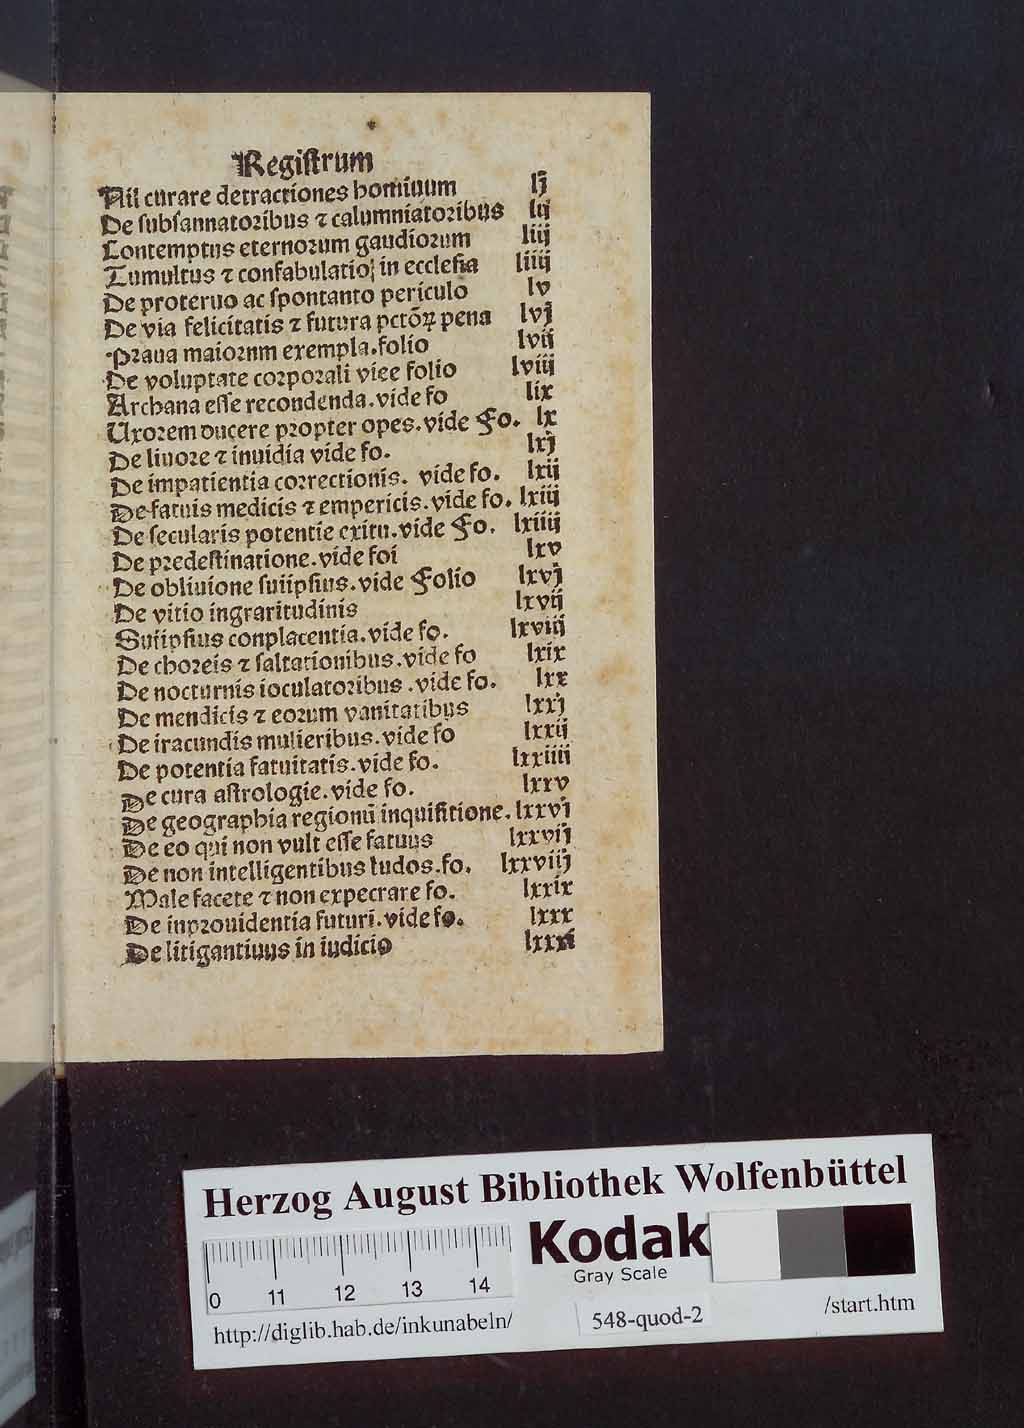 Regiſtrum
Nil curare detractiones hominum lj
De ſubſannatoribus ⁊ calumniatoribus lij
Contemptus eternorum gaudiorum liij
Tumultus ⁊ confabulatio in eccleſia liiij
De proteruo ac ſpontanto periculo lv
De via felicitatis ⁊ futura pctōꝝ pena lvj
Praua maiornm exempla.folio lvij
De voluptate corporali viee folio lviij
Archana eſſe recondenda.vide fo lix
Uxorem ducere propter opes.vide Fo. lx
De liuore ⁊ inuidia vide fo. lxj
De impatientia correctionis. vide fo. lxij
De fatuis medicis ⁊ empericis.vide fo. lxiij
De ſecularis potentie exitu.vide Fo. lxiiij
De predeſtinatione.vide foi lxv
De obliuione ſuiipſius.vide Folio lxvj
De vitio ingraritudinis lxvij
Suiipſius conplacentia.vide fo. lxviij
De choreis ⁊ ſaltationibus.vide fo lxix
De nocturnis ioculatoribus .vide fo. lxx
De mendicis ⁊ eorum vanitatibus lxxj
De iracundis mulieribus.vide fo lxxij
De potentia fatuitatis.vide fo. lxxiiij
De cura aſtrologie.vide fo. lxxv
De geographia regionū inquiſitione. lxxvj
De eo qui non vult eſſe fatuus lxxvij
De non intelligentibus ludos.fo. lxxviij
Male facete ⁊ non expecrare fo. lxxix
De inprouidentia futuri.vide fo. lxxx
De litigantiuus in iudicio lxxxi
Herzog August Bibliothek Wolfenbüttel
Kodak
Gray Scale
0 11 12 13 14
http://diglib.hab.de/inkunabeln/ 548-quod-2 /start.htm